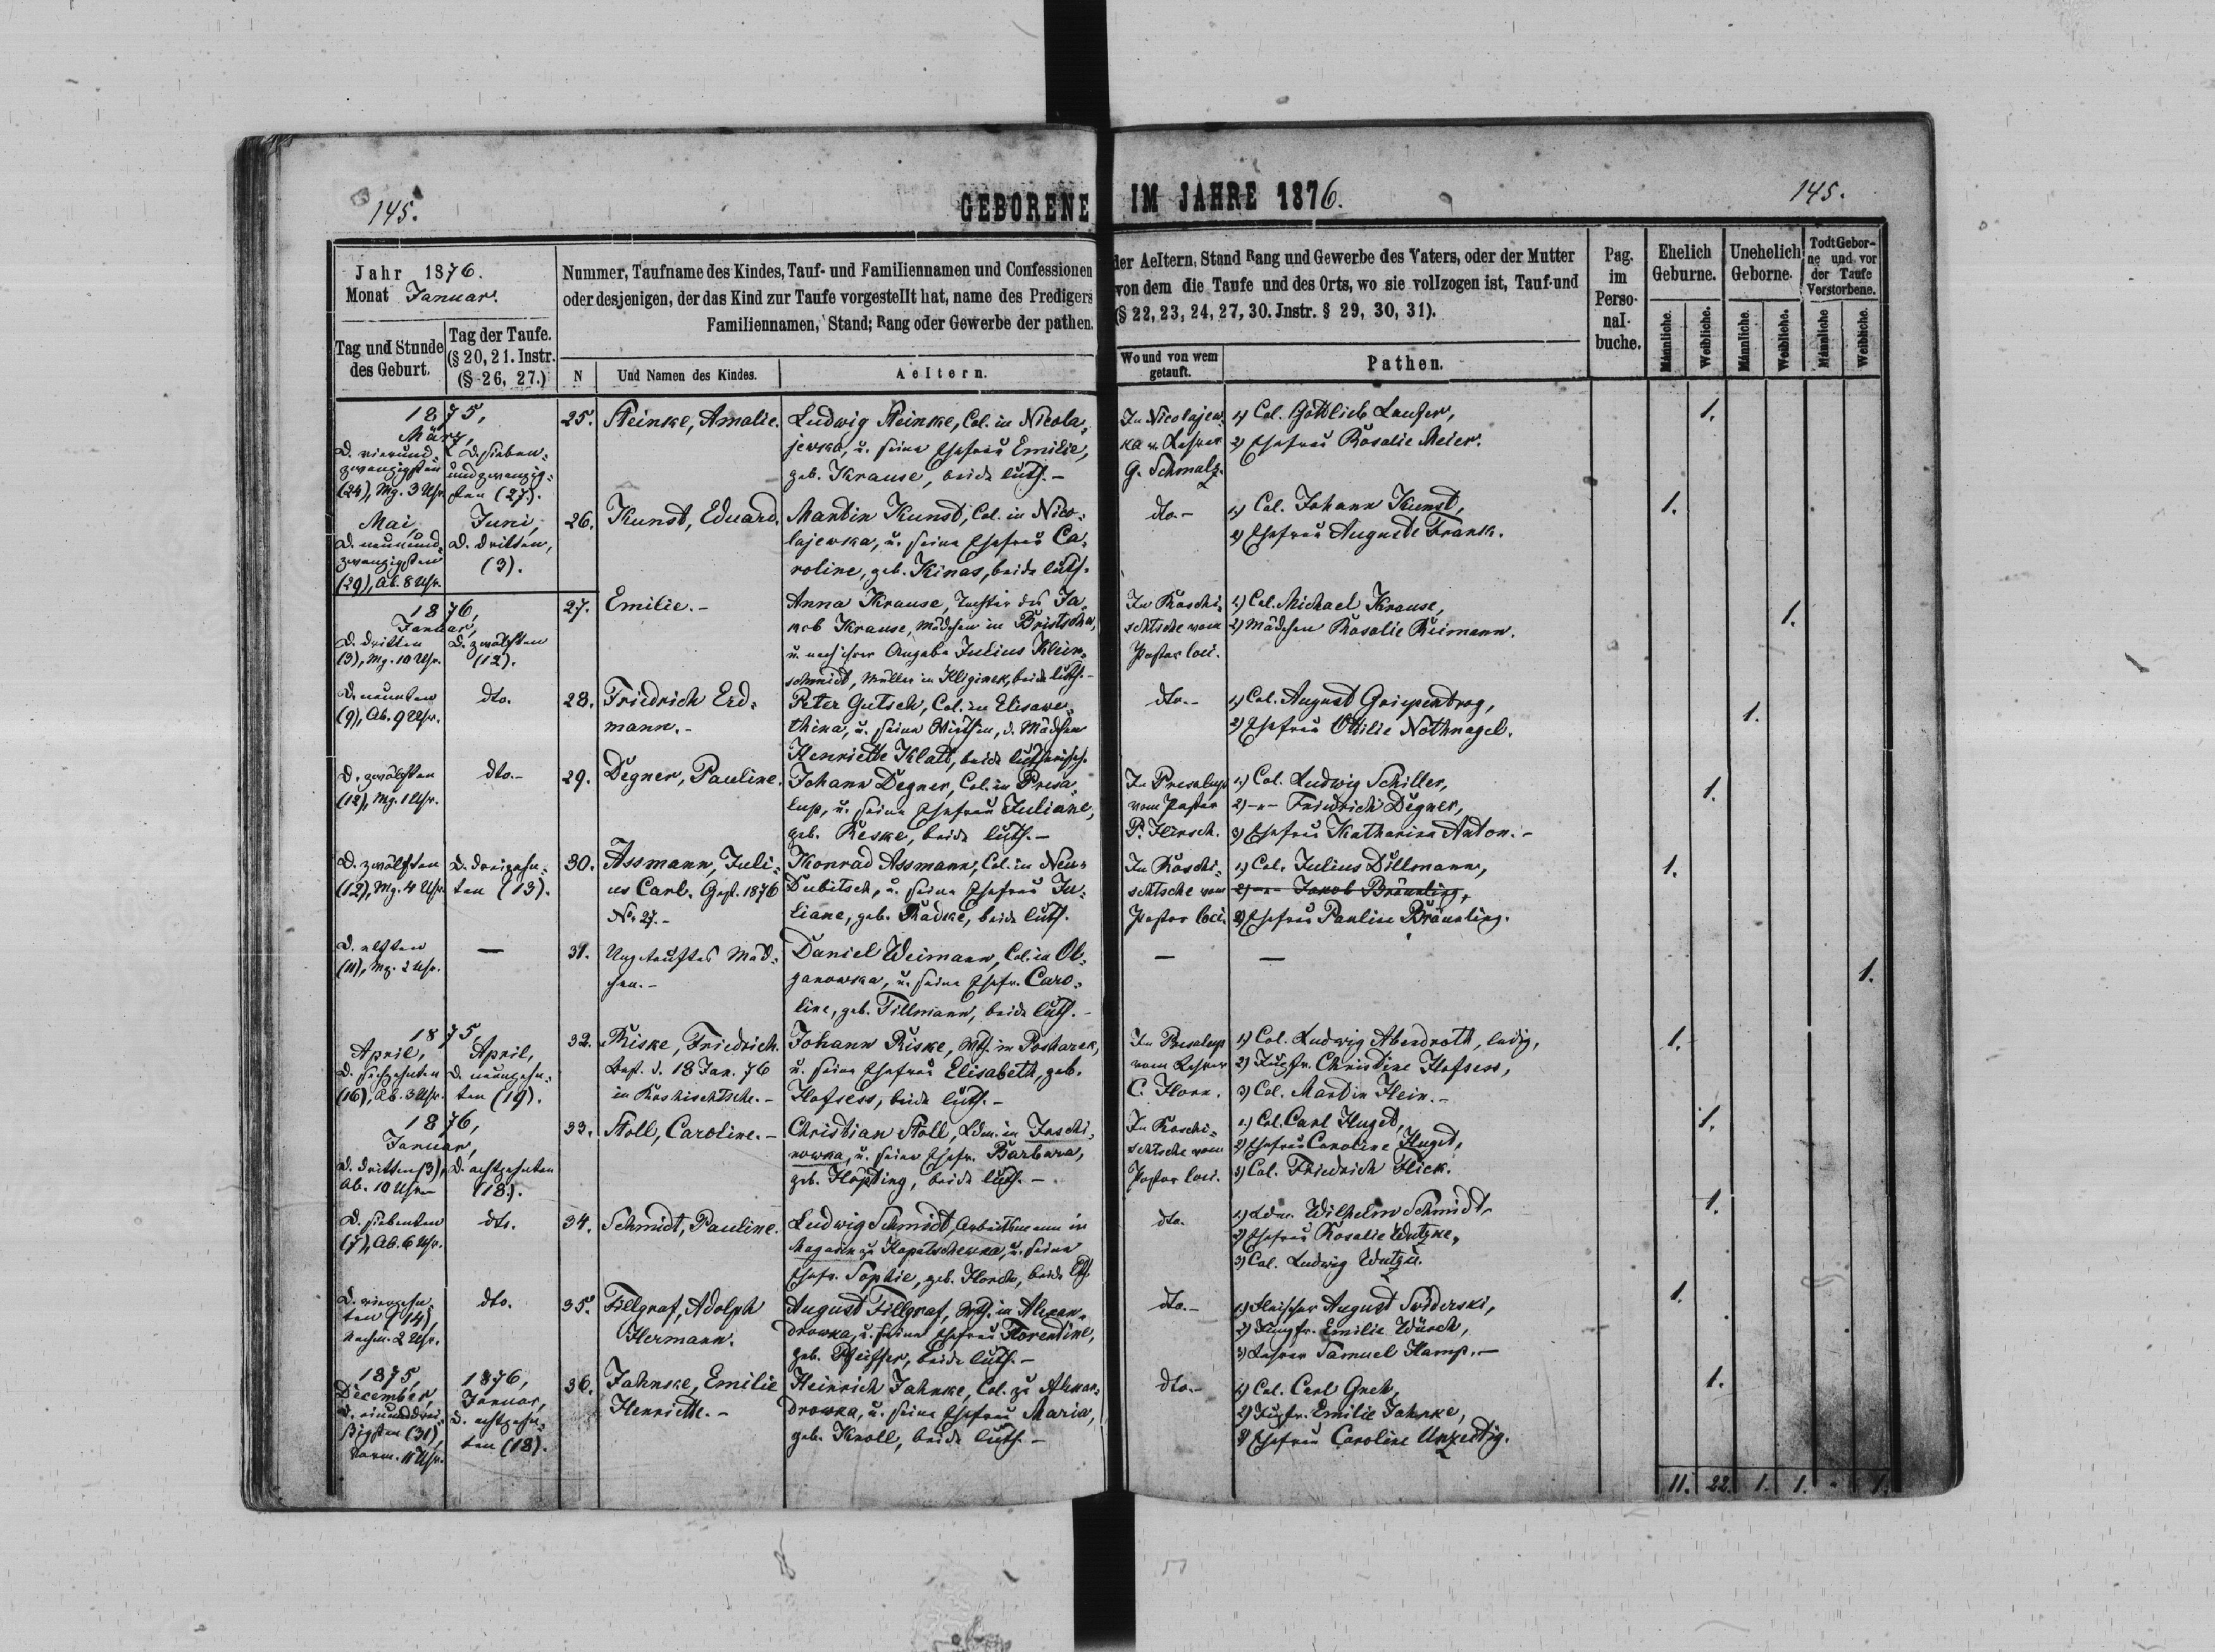 145.
GEBORENE IM JAHRE 1876.
145.
Jahr 1876.
Monat Januar.
Nummer, Taufname des Kindes, Tauf- und Familiennamen und Confessionen
oder desjenigen, der das Kind zur Taufe vorgestellt hat, name des Predigers
Familiennamen, Stand; Rang oder Gewerbe der pathen.
der Aeltern, Stand Rang und Gewerbe des Vaters, oder der Mutter
von dem die Taufe und des Orts, wo sie vollzogen ist, Tauf-und
(§ 22, 23, 24, 27, 30. Jnstr. § 29, 30, 31).
Pag.
im
Perso-
nal-
buche.
Ehelich
Geburne.
Unehelich
Geborne.
Todt Gebor-
ne und vor
der Taufe
Verstorbene.
Männliche.
Weibliche.
Männliche.
Weibliche.
Männliche
Weibliche.
Tag und Stunde
des Geburt.
Tag der Taufe.
(§ 20, 21. Instr.
(§ 26, 27.)
N
Und Namen des Kindes.
Aeltern.
Wo und von wem
getauft.
Pathen.
1875,
März,
D. vierund-
zwanzigsten
(24), Mg. 3 Uhr.
D. sieben-
undzwanzig-
sten (27).
25.
Steinke, Amalie.
Ludwig Steinke, Col. in Nicola-
jewka, u. seine Ehefrau Emilie,
geb. Krause, beide luth. -
In Nicolajew-
ka v. Lehrer
G. Schmalz.
1) Col. Gottlieb Laufer,
2) Ehefrau Rosalie Meier.
1.
Mai,
D. neunund-
zwanzigsten
(29), Ab. 8 Uhr.
Juni,
D. dritten,
(3).
26.
Kunst, Eduard.
Martin Kunst, Col. in Nico-
lajewka, u. seine Ehefrau Ca-
roline, geb. Kinas, beide luth.
dto. -
1) Col. Johann Kunst,
2) Ehefrau Auguste Frank.
1.
1876,
Januar,
D. dritten
(3), Mg. 10 Uhr.
D. zwölften
(12).
27.
Emilie. -
Anna Krause, Tochter des Ja-
kob Krause, Mädchen in Bristscha,
u. nach ihrer Angabe Julius Klein-
schmidt, Müller in Kliginek, beide luth. -
In Roschi-
schtsche vom
Pastor loci.
1) Col. Michael Krause,
2) Mädchen Rosalie Reimann.
1.
D. neunten
(9), Ab. 9 Uhr.
dto.
28.
Friedrich Erd-
mann. -
Peter Gutsch, Col. in Elisawe-
thina, u. seine Wirthin, d. Mädchen
Henriette Klatt, beide lutherisch.
dto. -
1) Col. August Griepentrog,
2) Ehefrau Ottilie Nothnagel.
1.
D. zwölften
(12), Mg. 1 Uhr.
dto. -
29.
Degner, Pauline.
Johann Degner, Col. in Presa-
lup, u. seine Ehefrau Juliane,
geb. Reske, beide luth. -
In Presalup
vom Pastor
P. Hirsch.
1) Col. Ludwig Schiller,
2) -"- Friedrich Degner,
3) Ehefrau Katharina Anton. -
1.
D. zwölften
(12), Mg. 4 Uhr.
D. dreizehn-
ten (13).
30.
Assmann, Juli-
us Carl. Gest. 1876
No 27. -
Konrad Assmann, Col. in Neu-
Dubitsch, u. seine Ehefrau Ju-
liane, geb. Radke, beide luth.
In Roschi-
schtsche vom
Pastor loci.
1) Col. Julius Dillmann,
2) -"- Jakob Bräunling,
2) Ehefrau Pauline Bräunling.
1.
D. elften
(11), Mg. 2 Uhr.
—
31.
Ungetauftes Mäd-
chen. -
Daniel Weimann, Col. in Ol-
ganowka, u. seine Ehefr. Caro-
line, geb. Tillmann, beide luth. -
—
—
1.
1875,
April,
D. sechzehnten
(16), Ab. 3 Uhr.
April,
D. neunzehn-
ten (19).
32.
Riske, Friedrich.
Best. d. 18 Jan. 76
in Roschischtsche. -
Johann Riske, Wth. in Poscharek,
u. seine Ehefrau Elisabeth, geb.
Hofsess, beide luth. -
In Presalup
vom Lehrer
C. Horn.
1) Col. Ludwig Abendroth, ledig,
2) Jugfr. Christine Hofsess,
3) Col. Martin Hein. -
1.
1876,
Januar,
D. dritten (3),
Ab. 10 Uhr
D. achtzehnten
(18).
33.
Stoll, Caroline. -
Christian Stoll, Ldm. in Joschi-
nowka, u. seine Ehefr. Barbara,
geb. Höpting, beide luth. -
In Roschi-
schtsche vom
Pastor loci.
1) Col. Carl Huget,
2) Ehefrau Caroline Huget,
3) Col. Friedrich Flick.
1.
D. siebenten
(7), Ab. 6 Uhr.
dto.
34.
Schmidt, Pauline.
Ludwig Schmidt, Arbeitsmann in
Magazin zu Kopatschewka, u. seine
Ehefr. Sophie, geb. Horch, beide luth.
dto.
1) Ldm. Wilhelm Schmidt,
2) Ehefrau Rosalie Wutzke,
3) Col. Ludwig Wutzki.
1.
D. vierzehn-
ten (14),
Nachm. 2 Uhr.
dto.
35.
Fillgraf, Adolph
Hermann.
August Fillgraf, Wth. in Alexan-
drowka, u. seine Ehefrau Florentine,
geb. Pfeiffer, beide luth. -
dto. -
1) Fleischer August Swiderski,
2) Jungfr. Emilie Würch,
3) Lehrer Samuel Kamp. -
1.
1875,
December,
D. einunddrei-
ssigsten (31),
Vorm. 11 Uhr.
1876,
Januar,
D. achtzehn-
ten (18).
36.
Jahnke, Emilie
Henriette. -
Heinrich Jahnke, Col. zu Alexan-
drowka, u. seine Ehefrau Maria,
geb. Knoll, beide luth. -
dto. -
1) Col. Carl Gret,
2) Jugfr. Emilie Jahnke,
3) Ehefrau Caroline Unzeitig.
1.
11. 22. 1. 1. - 1.